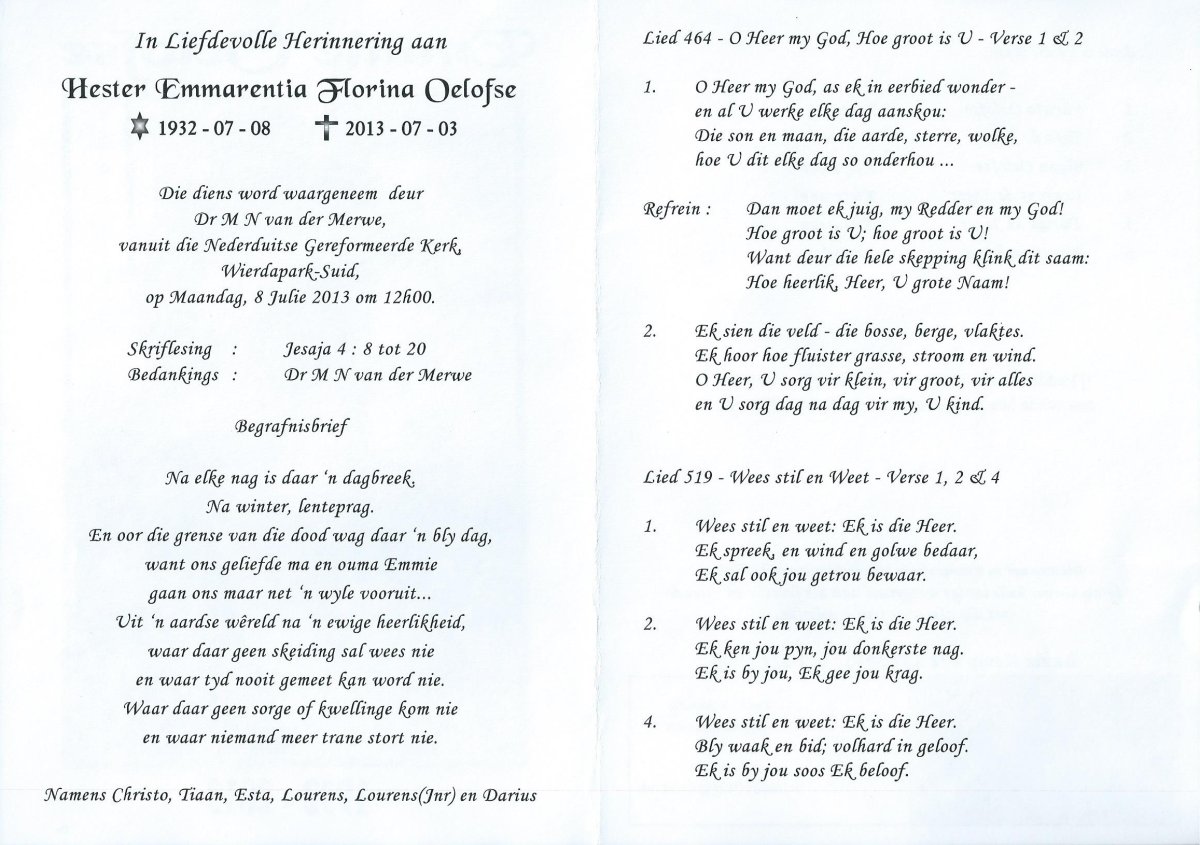 In Liefdevolle Herinnering aan
Hester Emmarentia Florina Oelofse
1932 - 07 - 08 2013 - 07 - 03
Die diens word waargeneem deur
Dr M N van der Merwe,
vanuit die Nederduitse Gereformeerde Kerk,
Wierdapark-Suid,
op Maandag, 8 Julie 2013 om 12h00.
Skriflesing : Jesaja 4 : 8 tot 20
Bedankings : Dr M N van der Merwe
Begrafnisbrief
Na elke nag is daar ‘n dagbreek,
Na winter, lenteprag.
En oor die grense van die dood wag daar ‘n bly dag,
want ons geliefde ma en ouma Emmie
gaan ons maar net ‘n wyle vooruit...
Uit ‘n aardse wêreld na ‘n ewige heerlikheid,
waar daar geen skeiding sal wees nie
en waar tyd nooit gemeet kan word nie.
Waar daar geen sorge of kwellinge kom nie
en waar niemand meer trane stort nie.
Namens Christo, Tiaan, Esta, Lourens, Lourens(Jnr) en Darius
Lied 464 - O Heer my God, Hoe groot is U - Verse 1 & 2
1. O Heer my God, as ek in eerbied wonder -
en al U werke elke dag aanskou:
Die son en maan, die aarde, sterre, wolke,
hoe U dit elke dag so onderhou ...
Refrein : Dan moet ek juig, my Redder en my God!
Hoe groot is U; hoe groot is U!
Want deur die hele skepping klink dit saam:
Hoe heerlik, Heer, U grote Naam!
2. Ek sien die veld - die bosse, berge, vlaktes.
Ek hoor hoe fluister grasse, stroom en wind.
O Heer, U sorg vir klein, vir groot, vir alles
en U sorg dag na dag vir my, U kind.
Lied 519 - Wees stil en Weet - Verse 1, 2 & 4
1. Wees stil en weet: Ek is die Heer.
Ek spreek, en wind en golwe bedaar,
Ek sal ook jou getrou bewaar.
2. Wees stil en weet: Ek is die Heer.
Ek ken jou pyn, jou donkerste nag.
Ek is by jou, Ek gee jou krag.
4. Wees stil en weet: Ek is die Heer.
Bly waak en bid; volhard in geloof.
Ek is by jou soos Ek beloof.